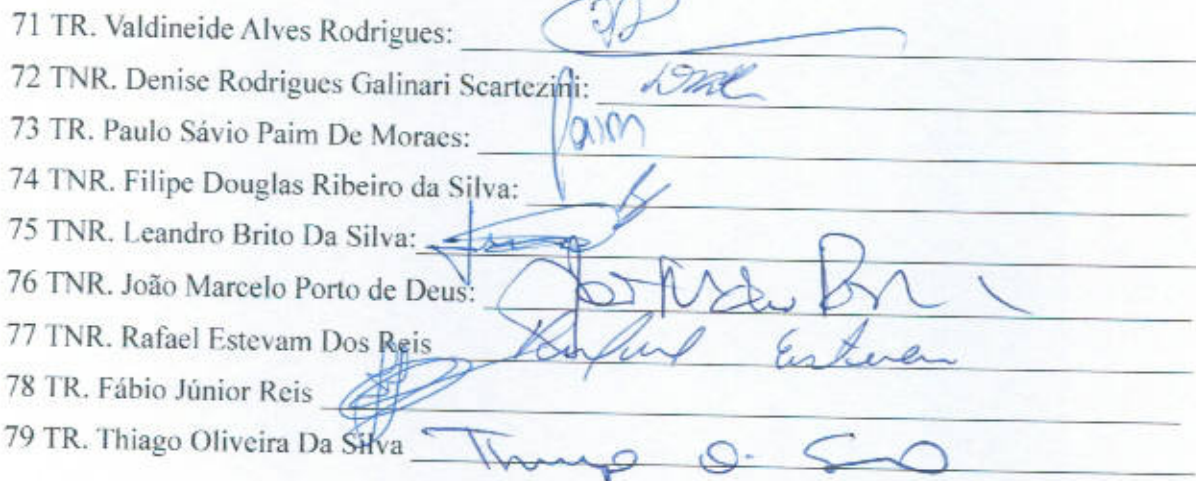 71 TR. Valdineide Alves Rodrigues:
72 TNR. Denise Rodrigues Galinari Scartezini:
73 TR. Paulo Sávio Paim De Moraes: Paim
74 TNR. Filipe Douglas Ribeiro da Silva:
75 TNR. Leandro Brito Da Silva:
76 TNR. João Marcelo Porto de Deus:
77 TNR. Rafael Estevam Dos Reis Rafael Estevam
78 TR. Fábio Júnior Reis
79 TR. Thiago Oliveira Da Silva